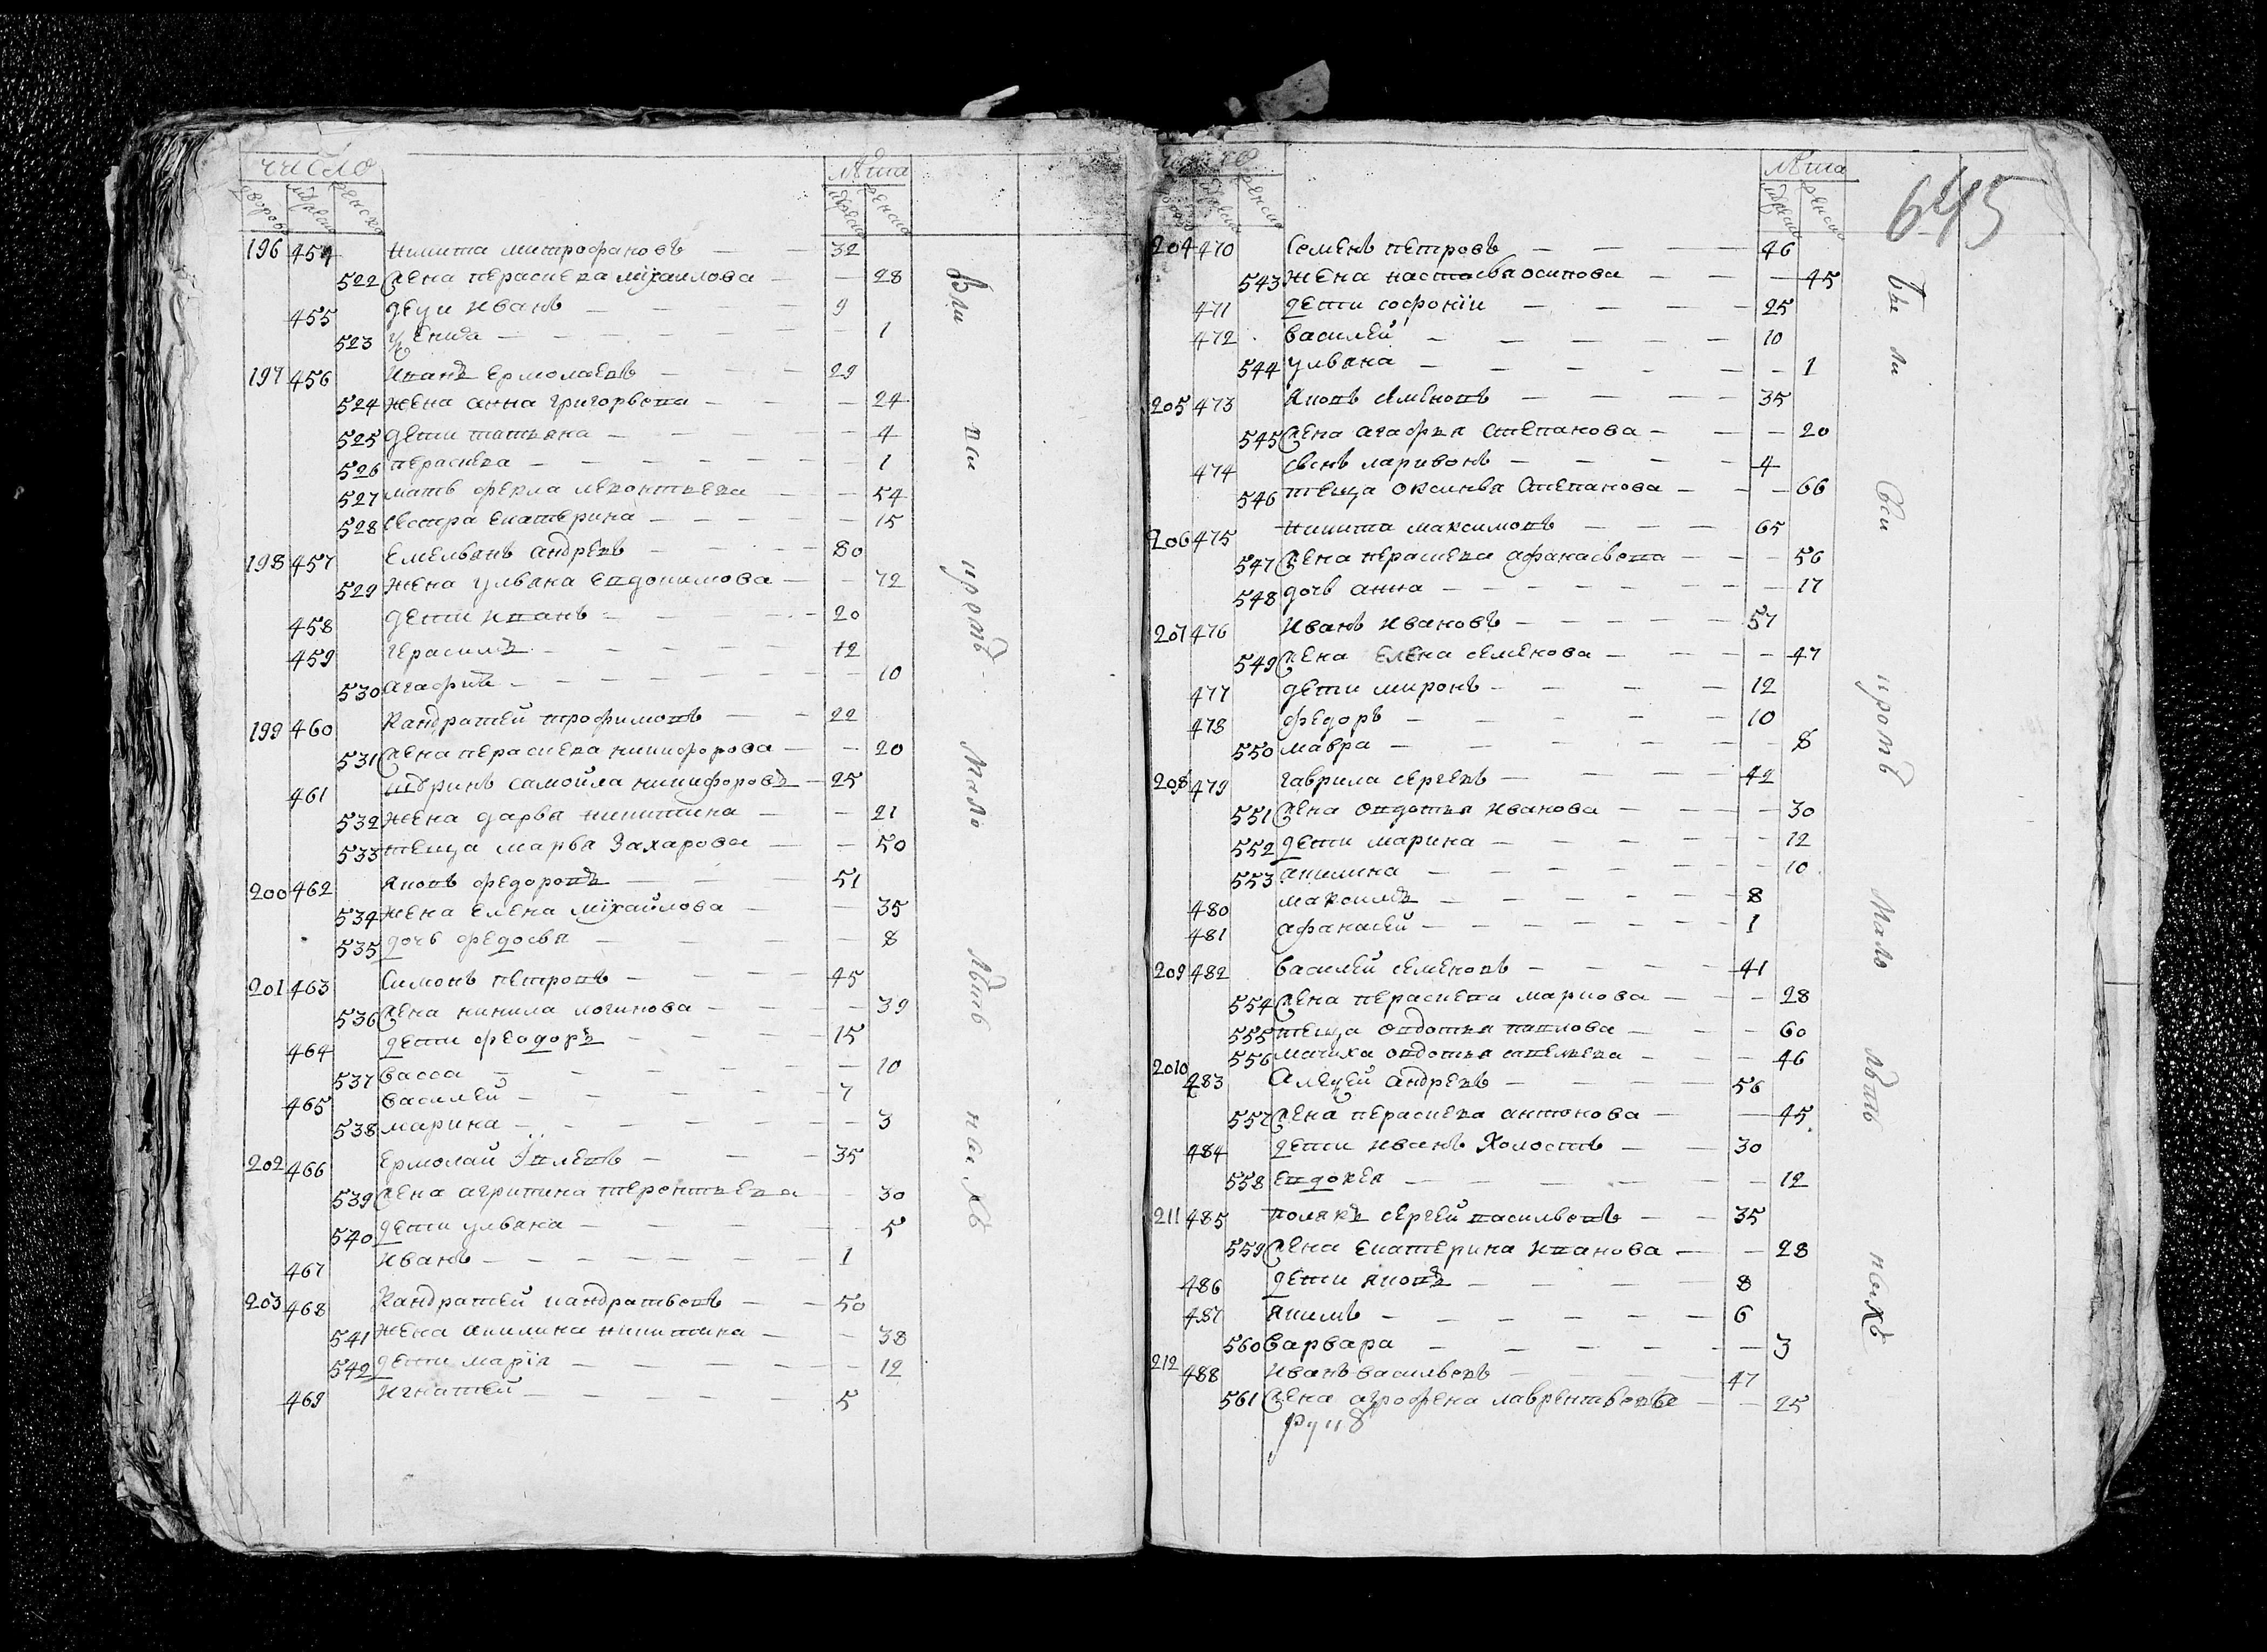 число
лѣта
дворовъ
мужеска
женска
мужеска
женска
196 454 никита митрофановъ 32
522 жена пераскева михаилова 28
455 дети иванъ 9
523 1
197 456 иванъ ермолаевъ 29
524 жена анна григорьева 24
525 дети татьяна 4
526 пераскева 1
527 мать фекла леконтьева 54
528 сестра екатерина 15
198 457 емельянъ андревъ 80
529 жена ульяна евдокимова 72
458 дети иванъ 20
459 герасимъ 12
530 агафия 10
199 460 кандратей трофимовъ 22
531 жена пераскева никифорова 20
461 шуринъ самойла никифоровъ 25
532 жена дарья никитина 21
533 теща марья захарова 50
200 462 яковъ федоровъ 51
534 жена елена михайлова 35
535 дочь федосья 8
201 463 симонъ петровъ 45
536 жена никила логинова 39
464 дети феодоръ 15
537 васса 10
465 василей 7
538 марина 3
202 466 ермолай 35
539 жена агрипина терентьева 30
540 дети ульяна 5
467 иванъ 1
203 468 кандратей кандратьевъ 50
541 жена акилина никитина 38
542 дети марія 12
469 игнатей 5
вси
мало
лѣтъ
645
число
лѣта
мужеска
женска
мужеска
женска
204 470 семенъ петровъ 46
543 жена настасья осипова 45
471 дети софонїи 25
472 василей 10
544 ульяна 1
205 473 яковъ семеновъ 35
545 жена агафья степанова 20
474 сынъ ларивонъ 4
546 теща оксинья степанова 66
206 475 никита максимовъ 65
547 жена пераскева афанасьева 56
548 дочь анна 17
207 476 иванъ ивановъ 57
549 жена елена семенова 47
477 дети миронъ 12
478 федоръ 10
550 мавра 8
208 479 гаврила сергевъ 42
551 жена овдотья иванова 30
552 дети марина 12
553 акилина 10
480 максимъ 8
481 афанасей 1
209 482 василей семеновъ 41
554 жена пераскева маркова 28
555 теща овдотья павлова 60
556 мачиха овдотья 46
2010 483 алексей андревъ 56
557 жена пераскева антонова 45
484 дети иванъ холостъ 30
558 евдокея 12
211 485 полякъ сергей васильевъ 35
559 жена екатерина иванова 28
486 дети яковъ 8
487 якимъ 6
560 варвара 3
212 488 иванъ васильевъ 47
561 жена агрофена лаврентьевы 25
вси
мало
лѣтъ